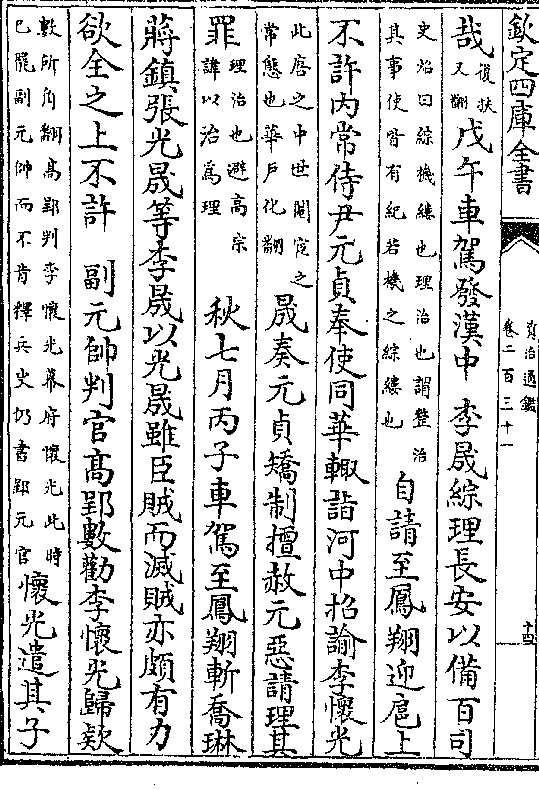 欽定四庫全書
資治通鑑
卷二百三十一
十四
哉復扶又翻戊午車駕發漢中 李晟綜理長安以備百司
史炤曰綜機縷也理治也謂整治其事使皆有紀若機之綜縷也自請至鳳翔迎扈上
不許內常侍尹元貞奉使同華輙詣河中招諭李懷光
此唐之中世閹宦之常態也華戶化翻晟奏元貞矯制擅赦元惡請理其
罪理治也避高宗諱以治為理 秋七月丙子車駕至鳳翔斬喬琳
蔣鎮張光晟等李晟以光晟雖臣賊而滅賊亦頗有力
欲全之上不許 副元帥判官高郢數勸李懷光歸欵
數所角翻高郢判李懷光幕府懷光此時已罷副元帥而不肯釋兵史仍書郢元官懷光遣其子